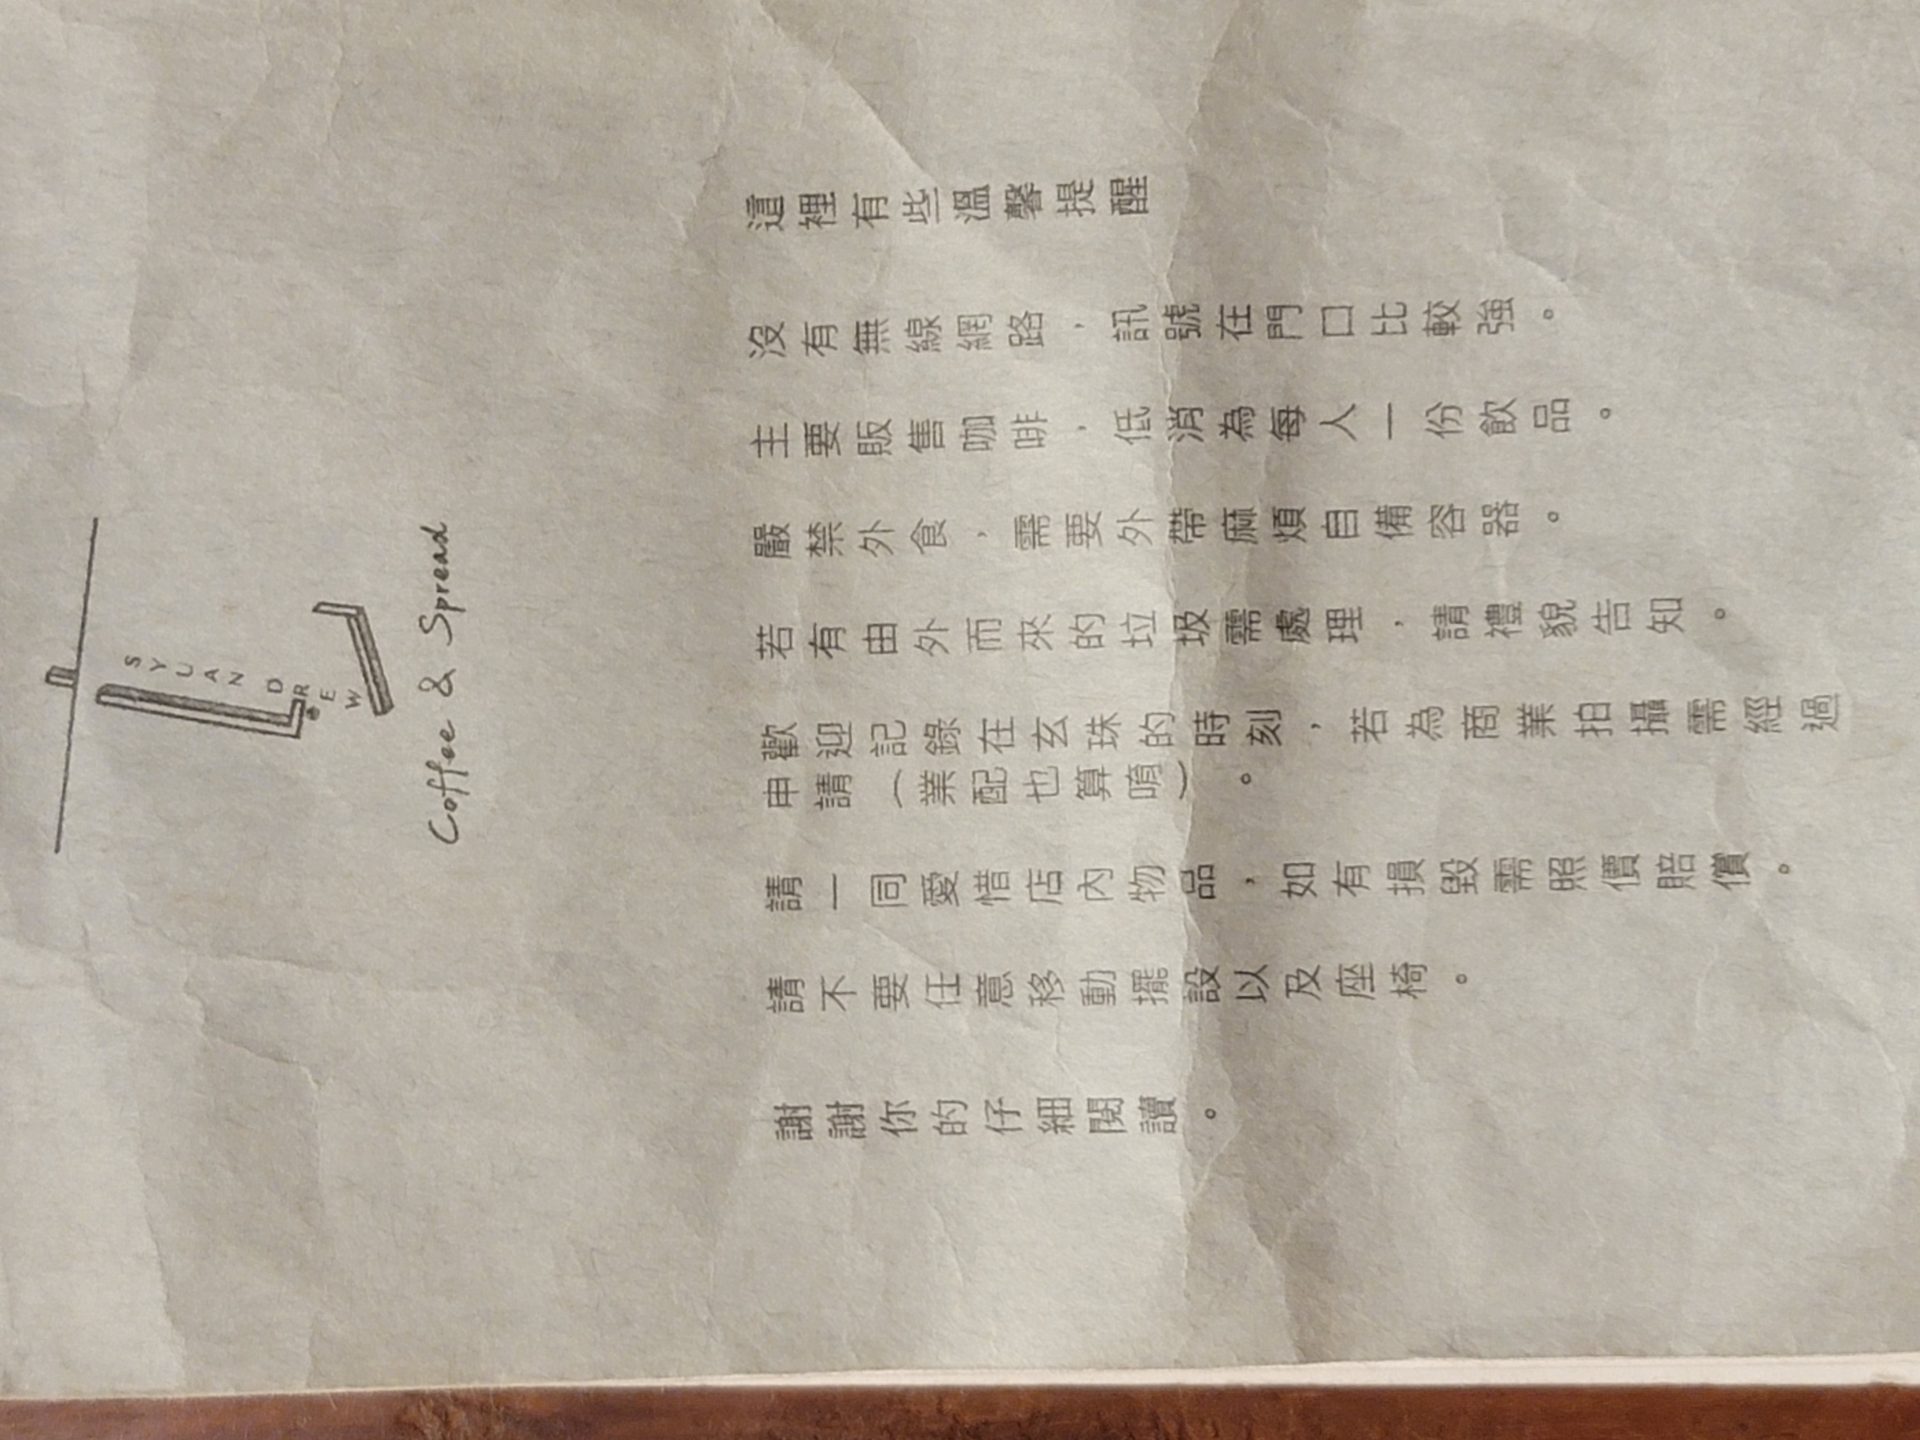 SYUAN DREW
Coffee & Spread
這裡有些溫馨提醒
沒有無線網路，訊號在門口比較強。
主要販售咖啡，低消為每人一份飲品。
嚴禁外食，需要外帶麻煩自備容器。
若有由外而來的垃圾需處理，請禮貌告知。
歡迎記錄在玄珠的時刻，若為商業拍攝需經過
申請（業配也算唷）。
請一同愛惜店內物品，如有損毀需照價賠償。
請不要任意移動擺設以及座椅。
謝謝你的仔細閱讀。